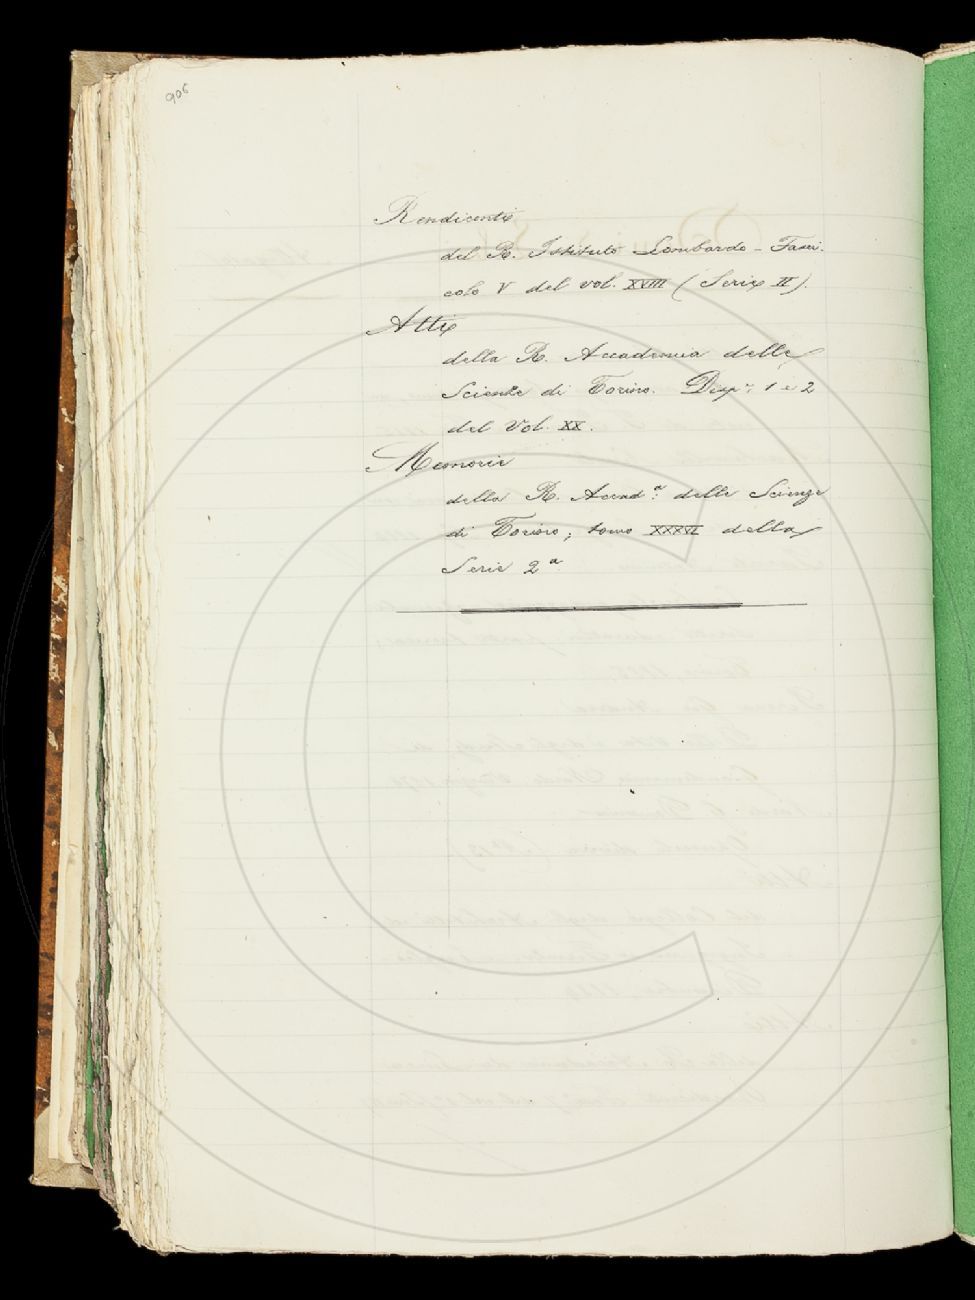 906
Rendiconti
del R. Istituto Lombardo - Fasci-
colo V del vol. XVIII (Serie II).
Atti
della R. Accademia delle
Scienze di Torino. Disp.e 1 e 2
del Vol. XX.
Memorie
della R. Accad.a delle Scienze
di Torino; tomo XXXVI della
Serie 2a.